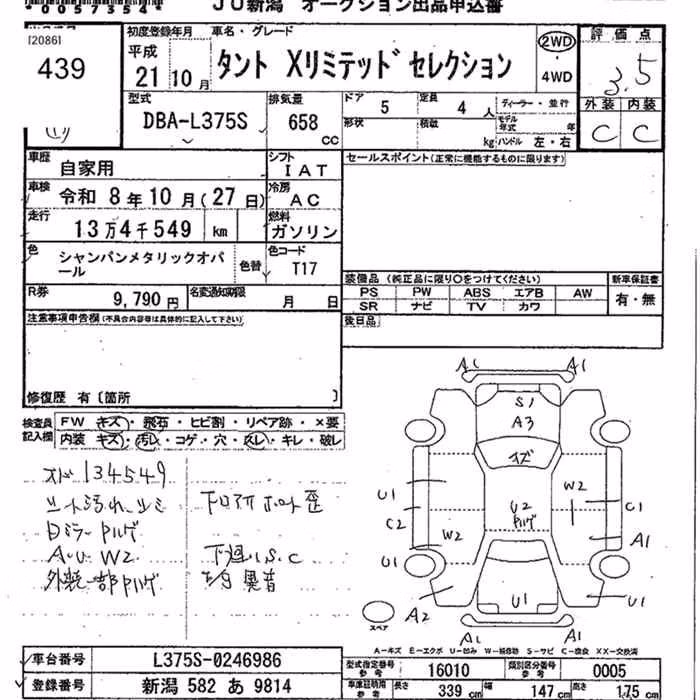 00573544
JU新潟 オークション出品申込書
120861
439
初度登録年月
平成
21 10 月
車名・グレード
タント Xリミテッド セレクション
2WD
・
4WD
評価点
3.5
外装 内装
C C
型式
DBA-L375S
排気量
658
CC
ドア 5
定員 4 人
ディーラー・並行
形状
積載
kg
モデル年式
年
ハンドル 左・右
車歴
自家用
シフト
IAT
セールスポイント(正常に機能するものに限ります)
車検 令和 8年 10月(27日)
冷房
AC
走行
13万4千549 km
燃料
ガソリン
色
シャンパンメタリックオパール
色替
色コード
T17
装備品 (純正品に限り○をつけてください)
新車保証書
PS PW ABS エアB AW
SR ナビ TV カワ
有・無
R券
9,790 円
名変通知期限
月 日
後日品
注意事項申告欄(不具合内容等は具体的に記入して下さい)
修復歴 有〔箇所 〕
検査員記入欄
FW キズ・飛石・ヒビ割・リペア跡・×要
内装 キズ・汚レ・コゲ・穴・スレ・キレ・破レ
134549
A.U W2
下廻りS.C
異音
A1 A1
S1
A3
キズ
U1
C2
W2
U2
W2
C1
A1
U1
A2
U1
U1
A1 A1
スペア
A-キズ E-エクボ U-凹み W-補修跡 S-サビ C-腐食 XX-交換済
車台番号 L375S-0246986
登録番号 新潟 582 あ 9814
型式指定番号
参考
16010
類別区分番号
参考
0005
車庫証明用
参考
長さ 339 cm 幅 147 cm 高さ 175 cm